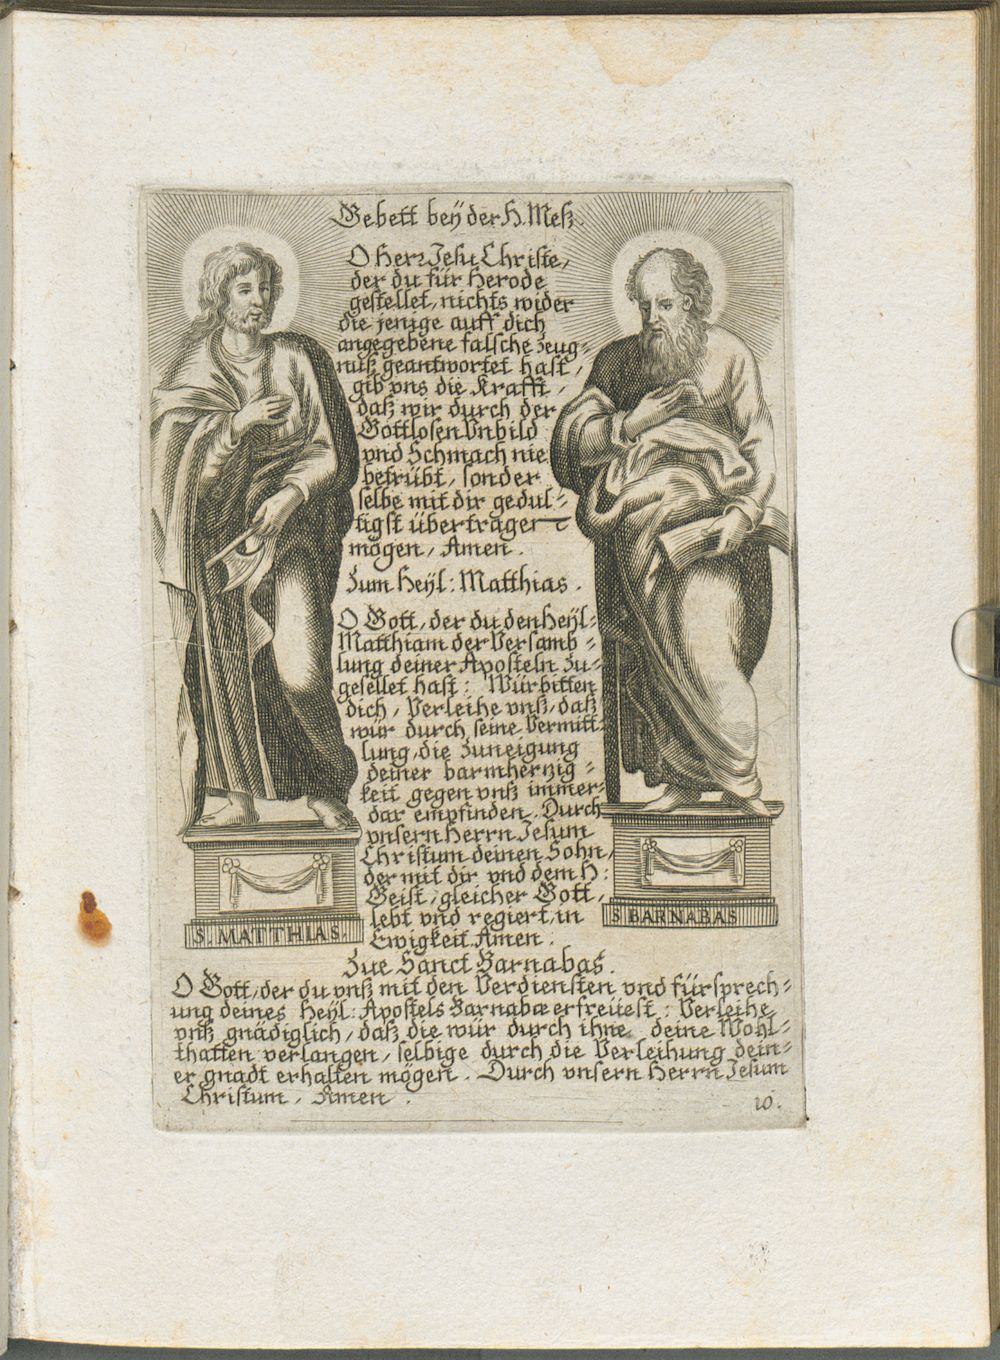 Gebett beÿ der H. Meß.
O Herr Jesu Christe,
der du für Herode
gestellet, nichts wider
die jenige auff dich
angegebene falsche Zeug=
nuß geantwortet hast,
gib vns die Krafft,
daß wir durch der
Gottlosen Vnbild
vnd Schmach nie
betrübt, sonder
selbe mit dir gedul=
tigst übertragen
mögen, Amen.
Zum Heÿl: Matthias.
O Gott, der du den Heÿl=
Matthiam der Versamb=
lung deiner Aposteln Zu=
gesellet hast: Würbitten
dich, Verleihe vnß, daß
wür durch seine Vermitt=
lung, die Zuneigung
deiner barmherzig=
keit gegen vnß immer=
dar empfinden. Durch
vnsern Herrn Jesum
Christum deinen Sohn,
der mit dir vnd dem H:
Geist, gleicher Gott,
lebt vnd regiert, in
Ewigkeit Amen.
S. MATTHIAS.
S BARNABAS
Zue Sanct Barnabas.
O Gott, der du vnß mit den Verdiensten vnd fürsprech=
ung deines Heÿl: Apostels Barnabæ erfreüest: Verleihe
vnß gnädiglich, daß die wür durch ihne deine Wohl=
thatten verlangen, selbige durch die Verleihung dein=
er gnadt erhalten mögen. Durch vnsern Herrn Jesum
Christum, Amen.
10.